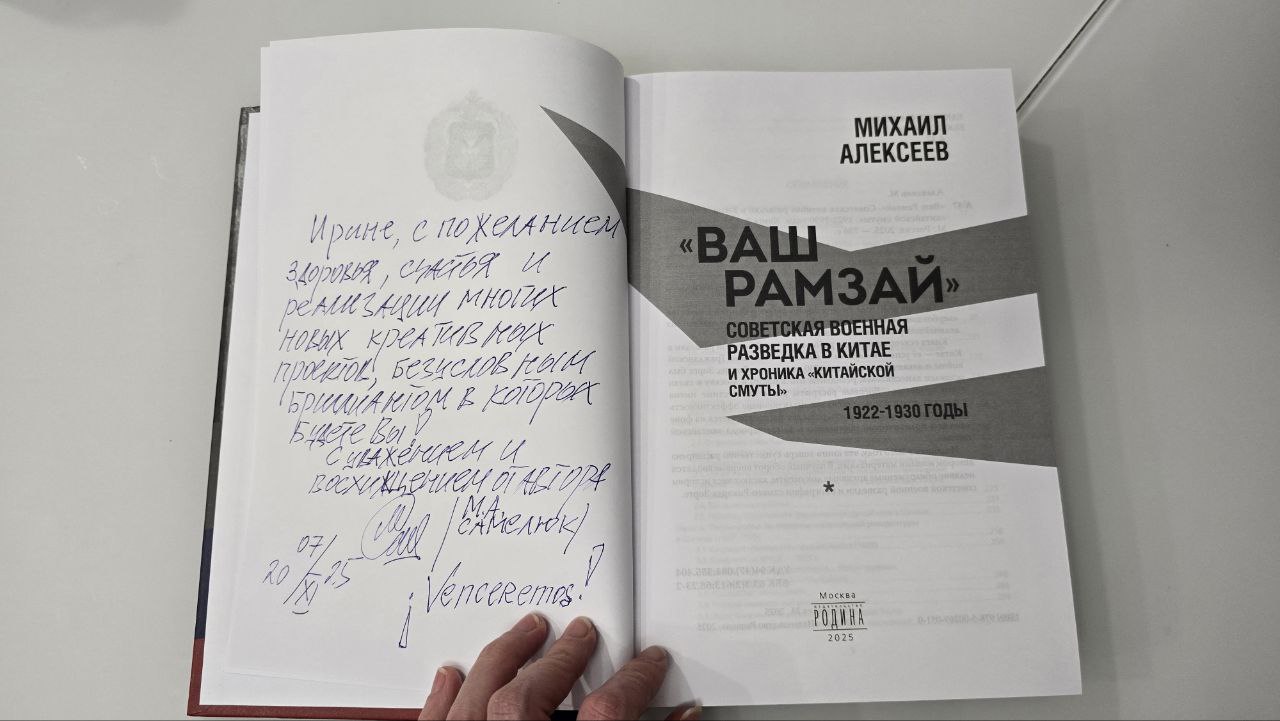 Ирине, с пожеланием
здоровья, счастья и
реализации многих
новых креативных
проектов, безусловным
бриллиантом в которых
будете Вы!
с уважением и
восхищением от автора
(М.А.
Самелюк)
20 07/XI 25
¡Venceremos!
МИХАИЛ
АЛЕКСЕЕВ
«ВАШ
РАМЗАЙ»
СОВЕТСКАЯ ВОЕННАЯ
РАЗВЕДКА В КИТАЕ
И ХРОНИКА «КИТАЙСКОЙ
СМУТЫ»
1922-1930 ГОДЫ
*
Москва
ИЗДАТЕЛЬСТВО
РОДИНА
2025